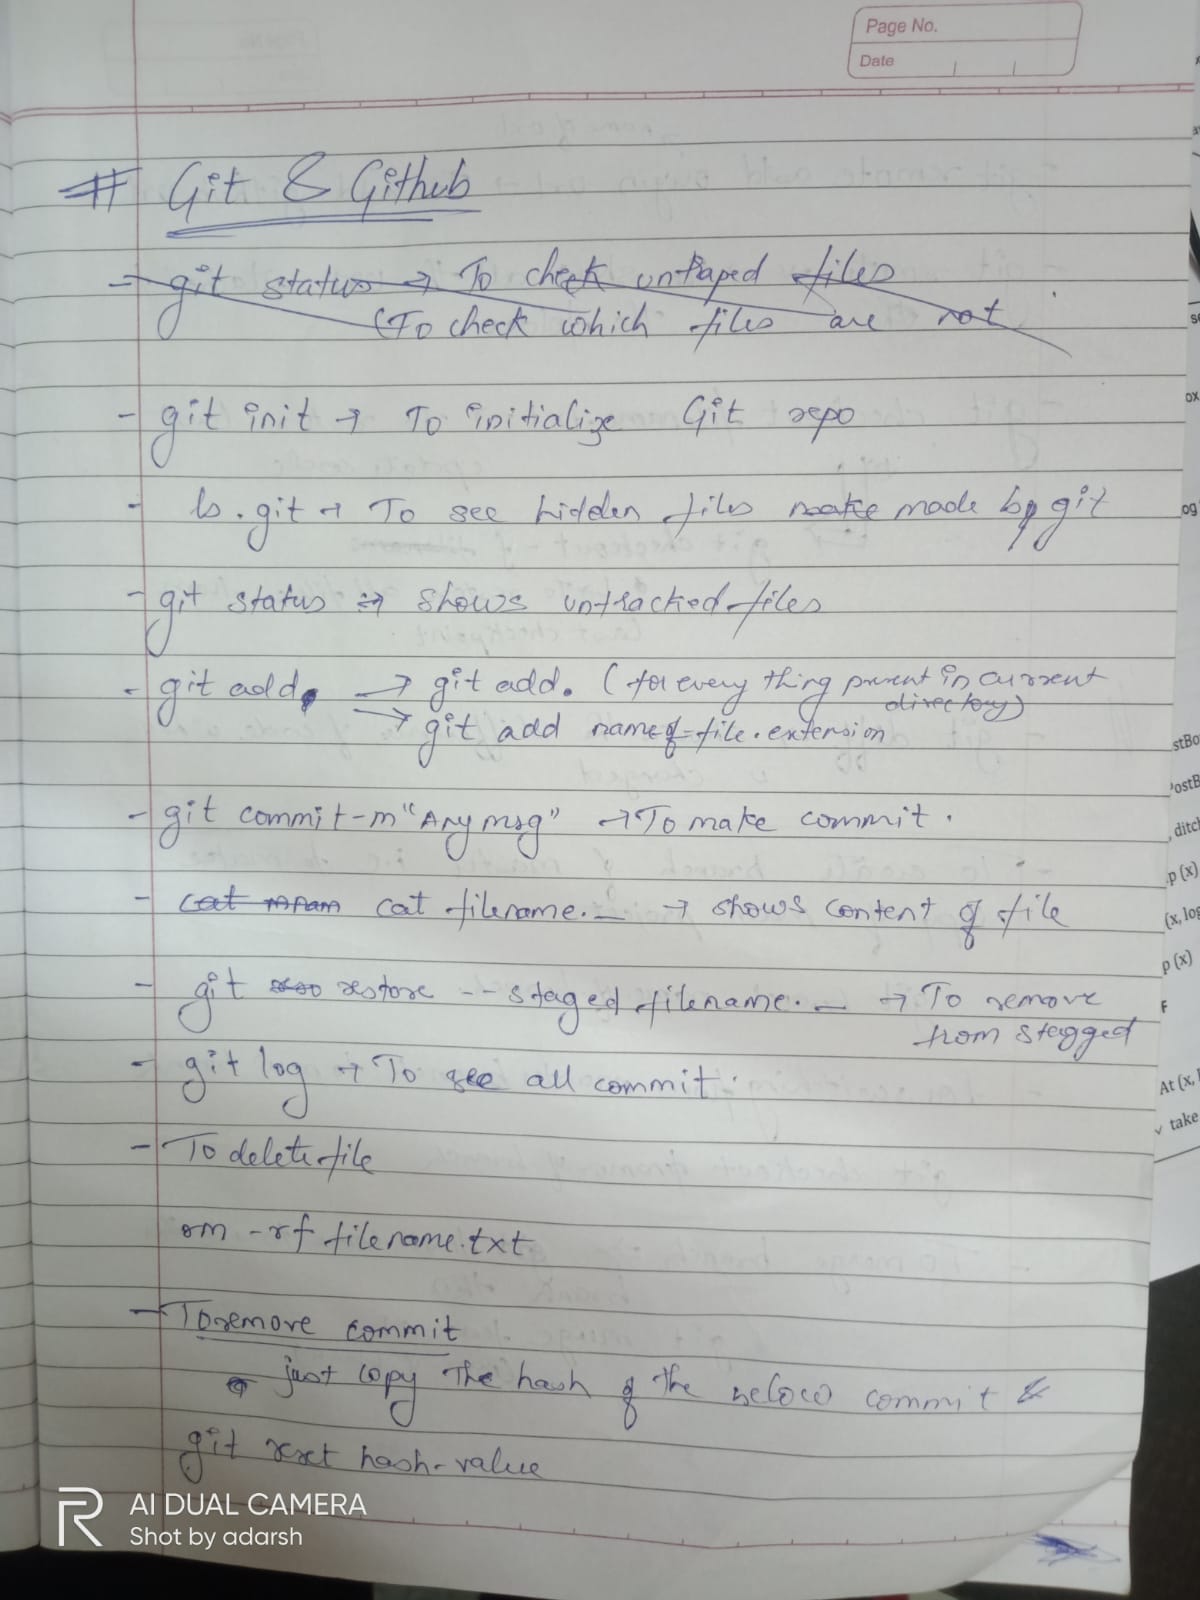 Page No.
Date
# Git & Github
- git status → To check untraped files
(To check which files are not
- git init → To initialize Git repo
- ls .git → To see hidden files made by git
- git status → shows untracked files
- git add. → git add. (for every thing present in current
directory)
→ git add name of file.extension
- git commit -m "Any msg" → To make commit.
- cat cat filename._ → shows content of file
- git restore --staged filename._ → To remove
from stagged
- git log → To see all commit.
- To delete file
rm -rf filename.txt
- To remove commit
just copy the hash of the below commit &
git reset hash-value
AI DUAL CAMERA
Shot by adarsh
stBo
PostB
, ditch
p (x)
(x, log
p (x)
F
At (x,
take